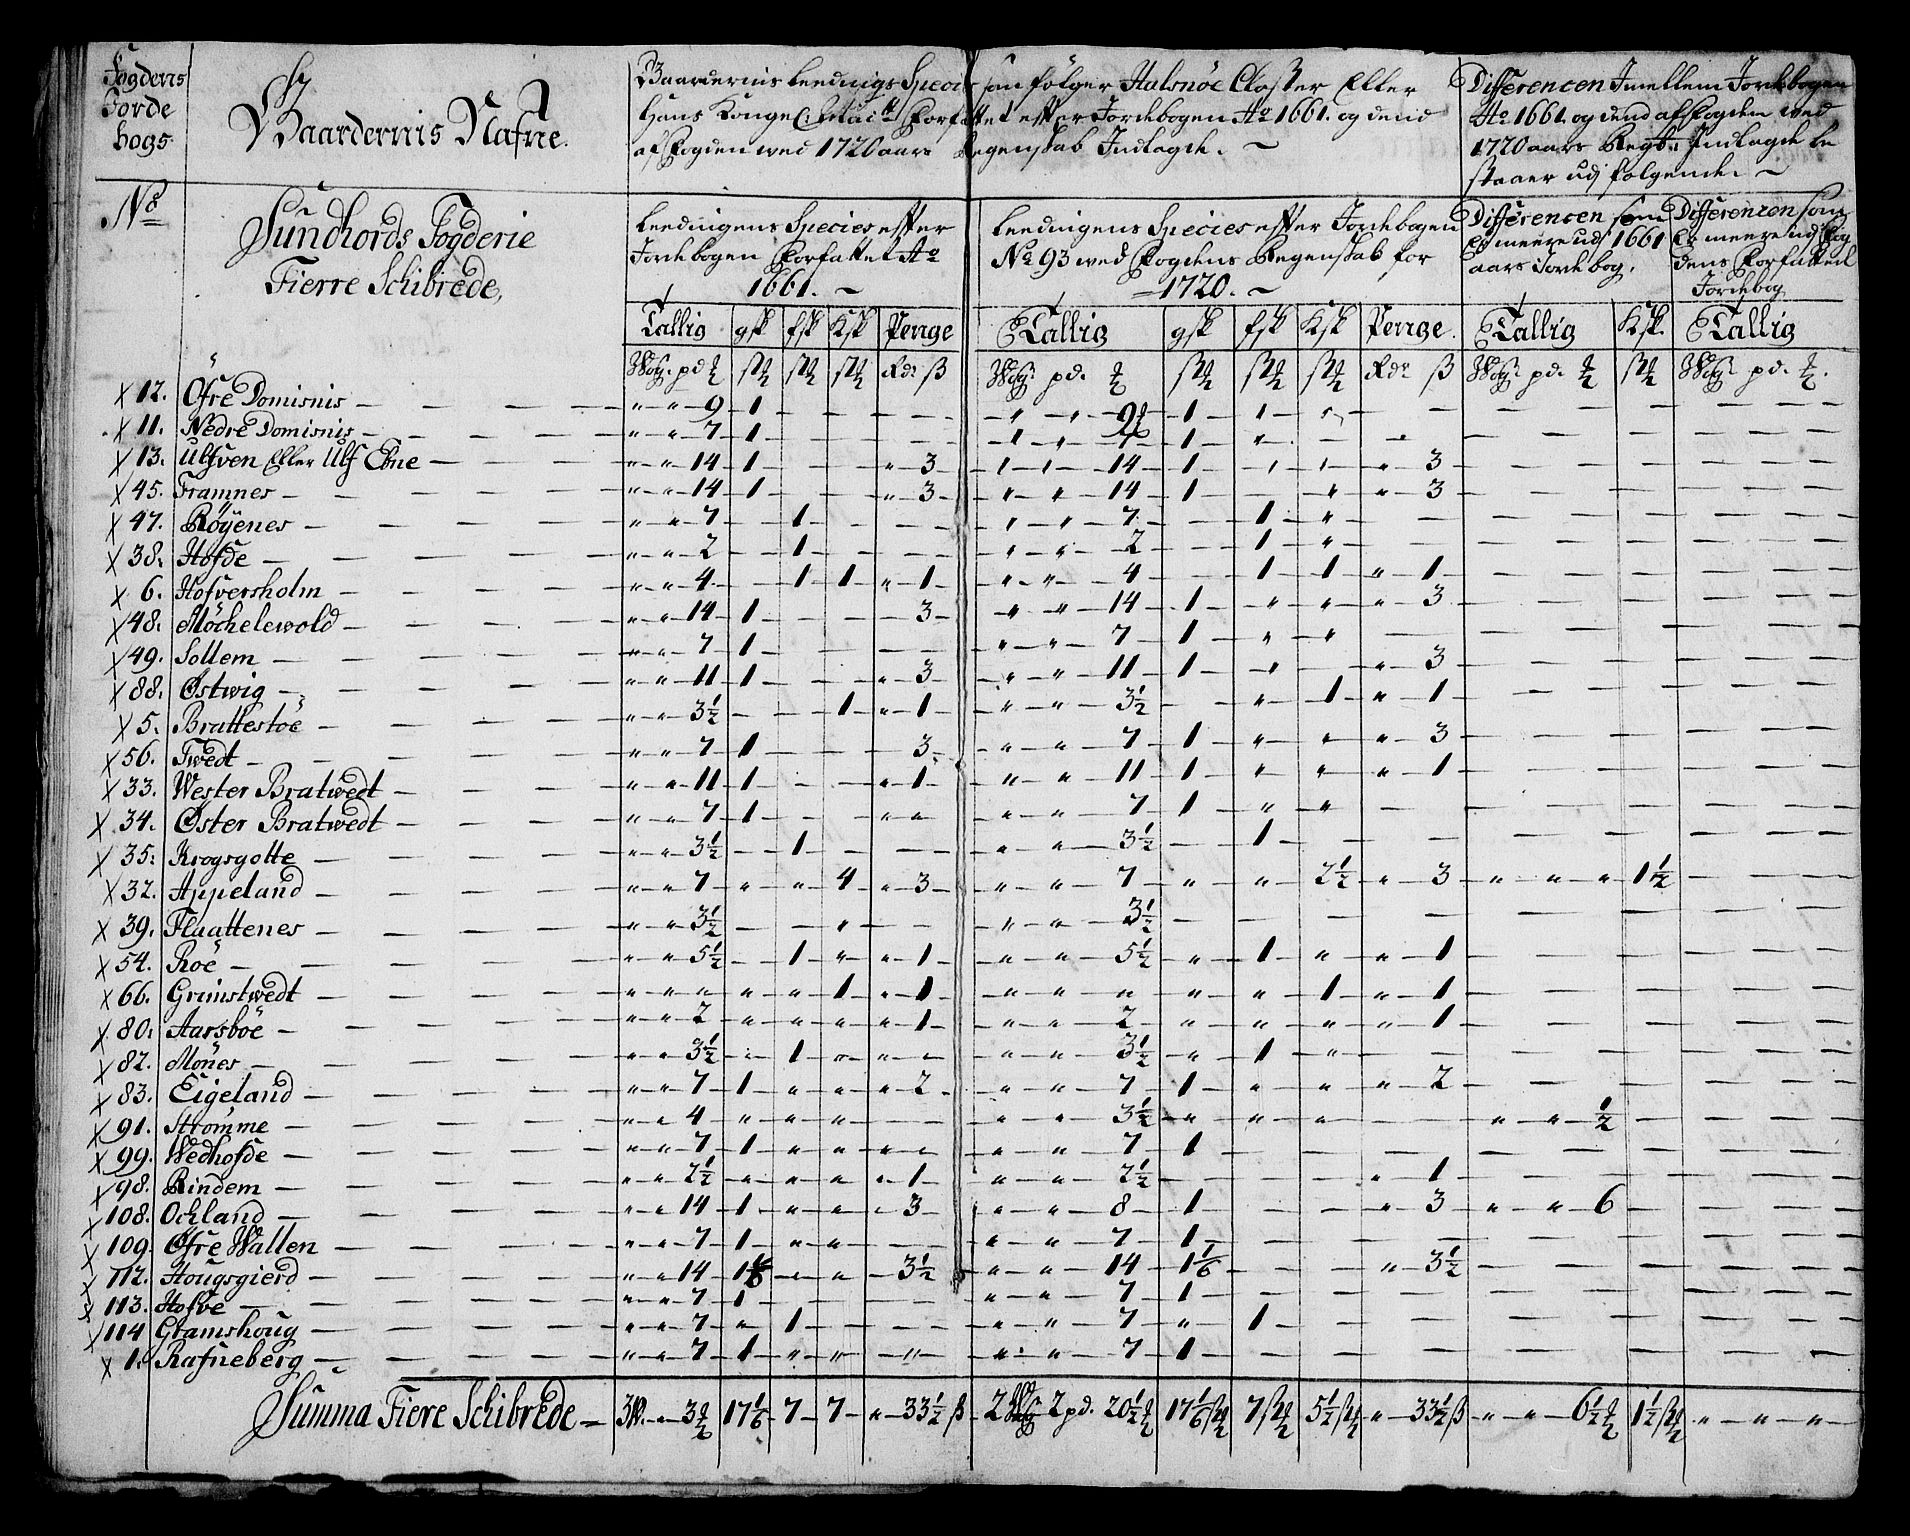 Fogdens
Jorde
bogs.
Gaardernis Nafne.
Gaardernis Leednigs Speci som følger Halsnøe Closter Eller
Hans Konge: Forfattet effter Jordebogen Ao 1661. og dend
af Fogden wed 1720 aars Regenskab Indlagde.
Differencen Imellem Jordebogen
Ao 1661. og dend af Fogden wed
1720 aars Regsk: Indlagde be
staaer udj følgende.
No
Sundhords Fogderie
Fierre Schibrede,
Leedningens Species effter
Jordebogen Forfattet Ao
1661.
Leedningens Species effter Jordebogen
No 93 wed Fogdens Regenskab for
1720.
Differencen som
er meere udj 1661
aars Jordebog.
Differencen som
Er meere udj Fog
dens Forfatted
Jordebog
Tallig gsk fsk Ksk Penge Tallig gsk fsk Ksk Penge. Tallig Ksk. Tallig
Wog. pd. Rdr ß Wog. pd. Rdr ß Wog. pd. Wog. pd.
x 12. Øfre Domisnis — " " 9 1 — 9 1
x 11. Nedre Domisnis — " " 7 1 — 7 1
x 13. Ulfven Eller Ulf Ebne — " " 14 1 " 3 — 14 1 " 3
x 45. Framnes — " " 14 1 " 3 " " 14 1 " " 3
x 47. Røyenes — " " 7 1 " " 7 1 "
x 38. Hofde — " " 2 1 " " 2 1 "
x 6. Hofversholm — " " 4 1 1 " 1 " " 4 1 1 " 1
x 48. Möchelewold — " " 14 1 3 " " 14 1 " " " 3
x 49. Sollem — " " 7 1 " " 7 1 " "
x 88. Østwig — " " 11 1 " 3 " " 11 1 " " 3
x 5. Brattestöe — " " 3½ 1 " 1 " " 3½ " 1 " 1
x 56. Twedt — " " 7 1 3 " " 7 1 " " " 3
x 33. Wester Bratwedt — " " 11 1 " 1 " " 11 1 " " " 1
x 34. Øster Bratwedt — " " 7 1 " " " " 7 1 " "
x 35. Krogsgotte — " " 3½ 1 " " 3½ 1
x 32. Appeland — " " 7 " " 4 " 3 " " 7 " " 2½ " 3 " " " 1½
x 39. Flaattenes — " " 3½ " " " 3½
x 54. Röe — " " 5½ 1 " " 1 " " 5½ " 1 " " 1
x 66. Grimstwedt " " " " " 1 " 1 " " " " " 1 " 1
x 80. Aarsböe — " " 2 " " " " 1 " " 2 " " " " 1
x 82. Mönes — " " 3½ " 1 " " " " " 3½ " 1 "
x 83. Eigeland — " " 7 1 " " " 2 " " 7 1 " " " 2
x 91. Strömme — " " 4 " " " " " 3½ " " " " " ½
x 99. Wedhofde — " " 7 1 " " " " " " 7 1
x 98. Rindem — " " 2½ " " " " 1 " " 2½ " 1
x 108. Ochland — " " 14 1 " " " 3 " " 8 1 " 3 " " 6
x 109. Øfre Wallen — " " 7 1 " " " " 7 1
x 112. Hougsgierd — " " 14 1⅙ " " 3½ " " 14 1⅙ " 3½
x 113. Hofve — " " 7 1 " " 7 1
x 114 Gramshoug — " " 7 " 1 " " 7 " 1
x 1. Rafneberg — " " 7 1 " " " " " 7 1
Summa Fiere Schibrede — 3W. " 3 17⅙ 7 7 " 33½ ß 2 Wog 2 pd. 20½ 17⅙ 7 5½ " 33½ ß " " 6½ 1½ " " "